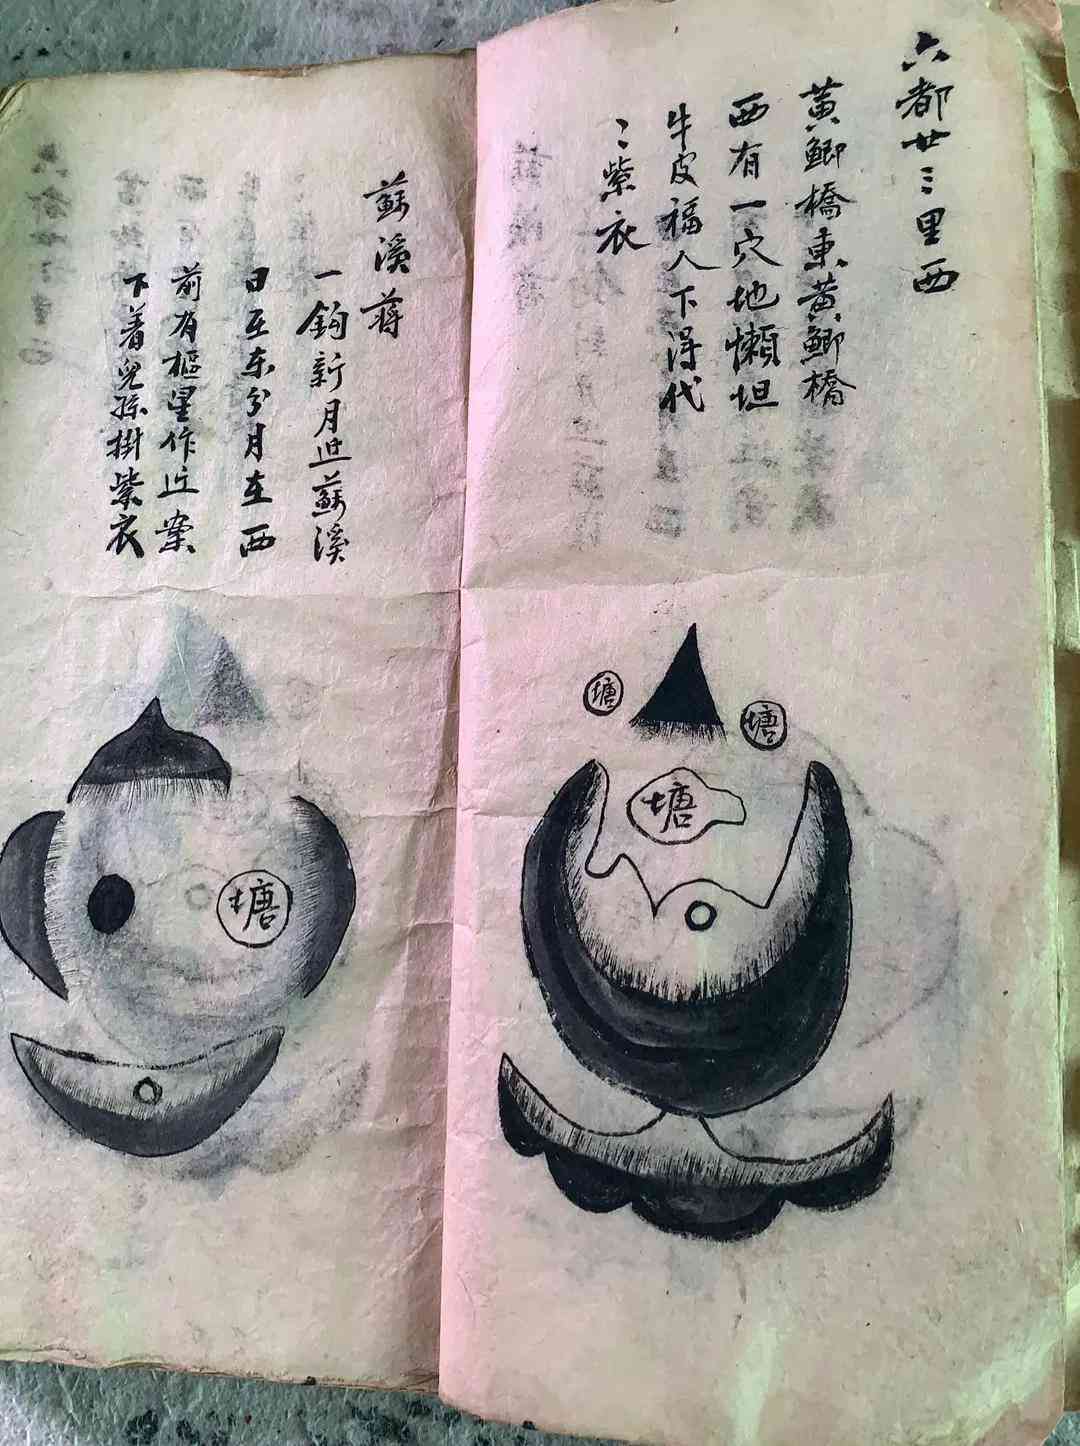 六都廿三里西
黃鯽橋東黃鯽橋
西有一穴地懶坦
牛皮福人下得代
〻紫衣
塘
塘
塘
蘇溪蔣
一鈎新月近蘇溪
日在東兮月在西
前有樞星作近案
下着兒孫掛紫衣
塘